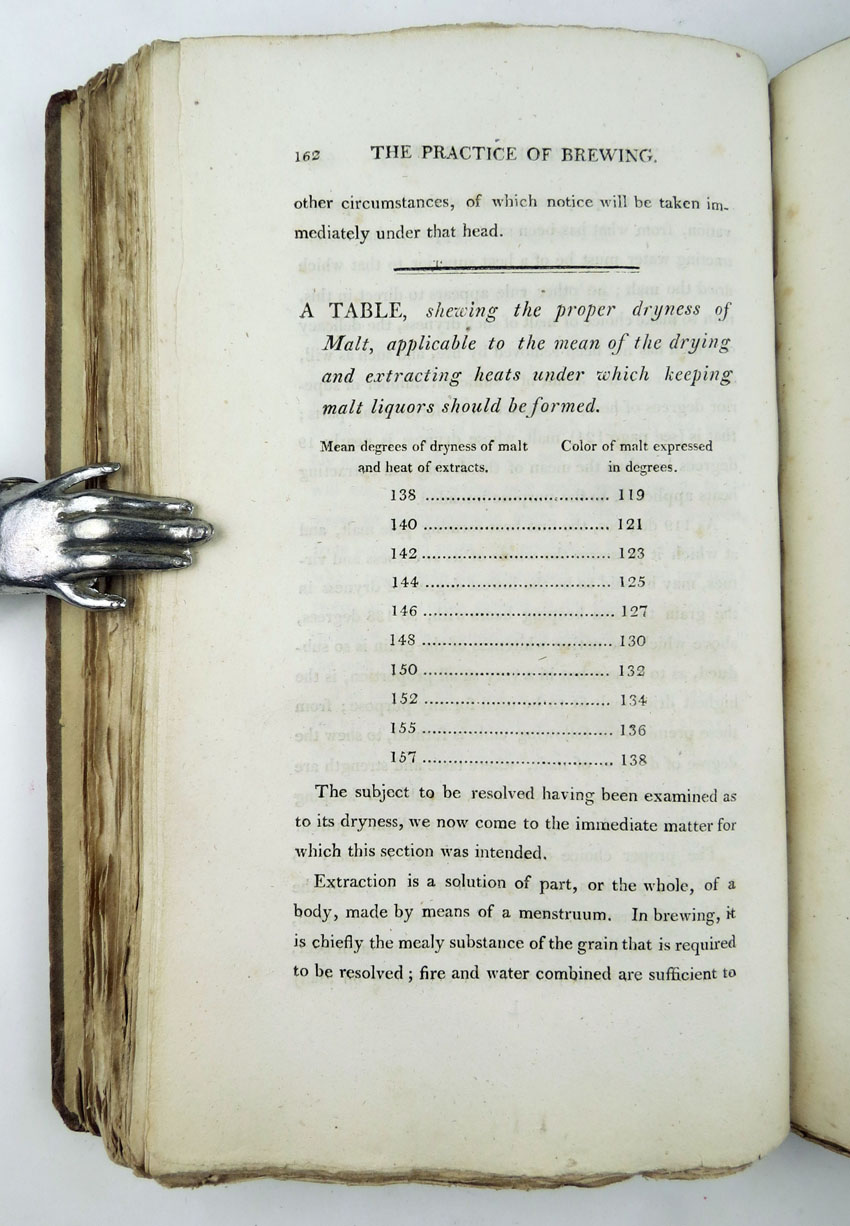 162 THE PRACTICE OF BREWING.
other circumstances, of which notice will be taken im-
mediately under that head.
A TABLE, shewing the proper dryness of
Malt, applicable to the mean of the drying
and extracting heats under which keeping
malt liquors should be formed.
Mean degrees of dryness of malt Color of malt expressed
and heat of extracts. in degrees.
138 ........................................ 119
140 ........................................ 121
142 ........................................ 123
144 ........................................ 125
146 ........................................ 127
148 ........................................ 130
150 ........................................ 132
152 ........................................ 134
155 ........................................ 136
157 ........................................ 138
The subject to be resolved having been examined as
to its dryness, we now come to the immediate matter for
which this section was intended.
Extraction is a solution of part, or the whole, of a
body, made by means of a menstruum. In brewing, it
is chiefly the mealy substance of the grain that is required
to be resolved ; fire and water combined are sufficient to